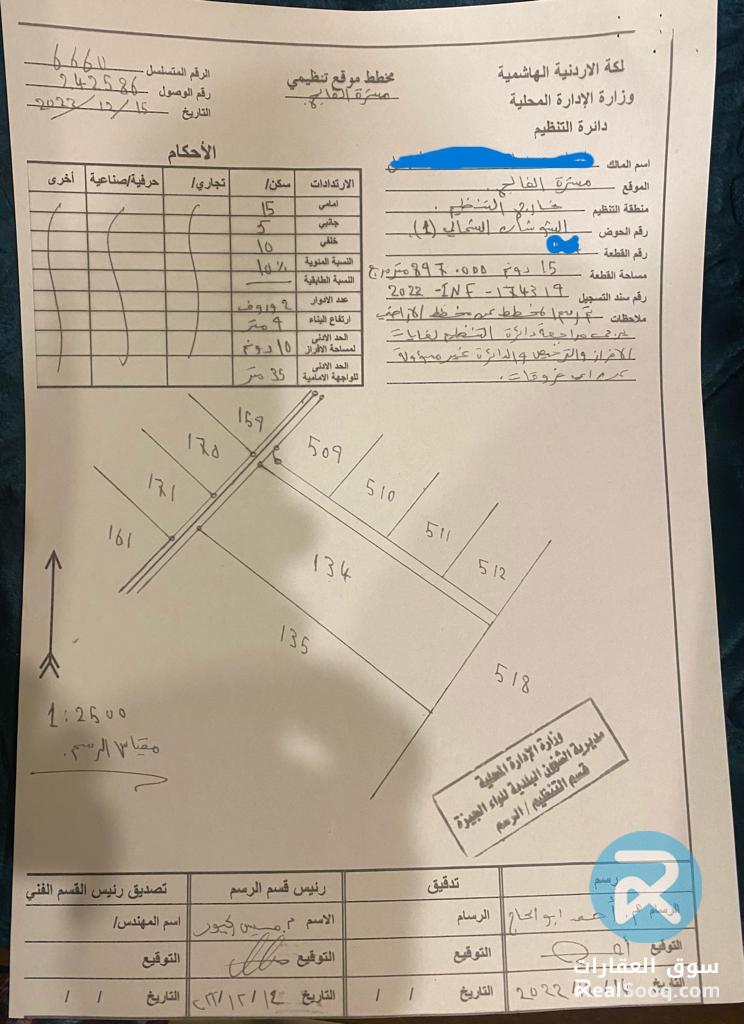 لكة الاردنية الهاشمية
وزارة الإدارة المحلية
دائرة التنظيم
مخطط موقع تنظيمي
الرقم المتسلسل 6660
رقم الوصول 242586
التاريخ 2022/12/15
اسم المالك
الموقع
منطقة التنظيم خارج التنظيم.
رقم الحوض الشمالي (1).
رقم القطعة
مساحة القطعة 15 دونم 897.000 متر مربع
رقم سند التسجيل 2022 - INF - 174319
ملاحظات تم رسم المخطط عن مخطط الاراضي
يرجى مراجعة دائرة التنظيم لغايات
الافراز والترخيص والدائرة غير مسؤولة
عن اي فروقات.
الأحكام
الارتدادات سكن/ تجاري/ حرفية/صناعية أخرى
امامي 15
جانبي 5
خلفي 10
النسبة المئوية 10%
النسبة الطابقية
عدد الادوار 2 وروف
ارتفاع البناء 9 متر
الحد الادنى لمساحة الأفراز 10 دونم
الحد الادنى للواجهة الامامية 35 متر
159
170
171
161
509
510
511
512
134
135
518
1:2500
مقياس الرسم.
وزارة الإدارة المحلية
مديرية الشؤون البلدية للواء الجيزة
قسم التنظيم / الرسم
رسم تدقيق رئيس قسم الرسم تصديق رئيس القسم الفني
الرسام أحمد ابو الحاج الرسام الاسم اسم المهندس/
التوقيع التوقيع التوقيع التوقيع
التاريخ 2022 التاريخ / / التاريخ ٢٢/١٢/١٤ التاريخ / /
سوق العقارات
RealSooq.com